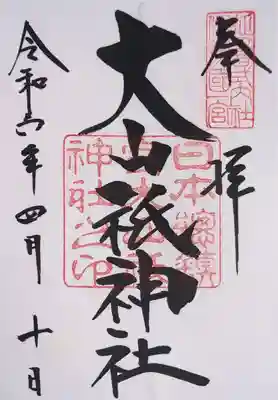 奉拝
大山祇神社
日本總鎮
守大山祇
神社之印
令和六年四月十日